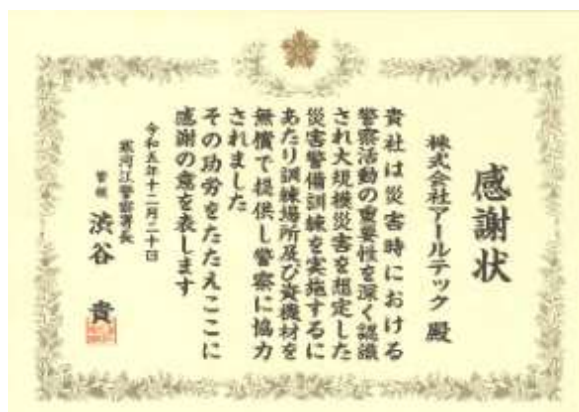 感謝状
株式会社アールテック 殿
貴社は災害時における
警察活動の重要性を深く認識
され大規模災害を想定した
災害警備訓練を実施するに
あたり訓練場所及び資機材を
無償で提供し警察に協力
されました
その功労をたたえここに
感謝の意を表します
令和五年十二月二十日
寒河江警察署長
警視 渋谷 貴